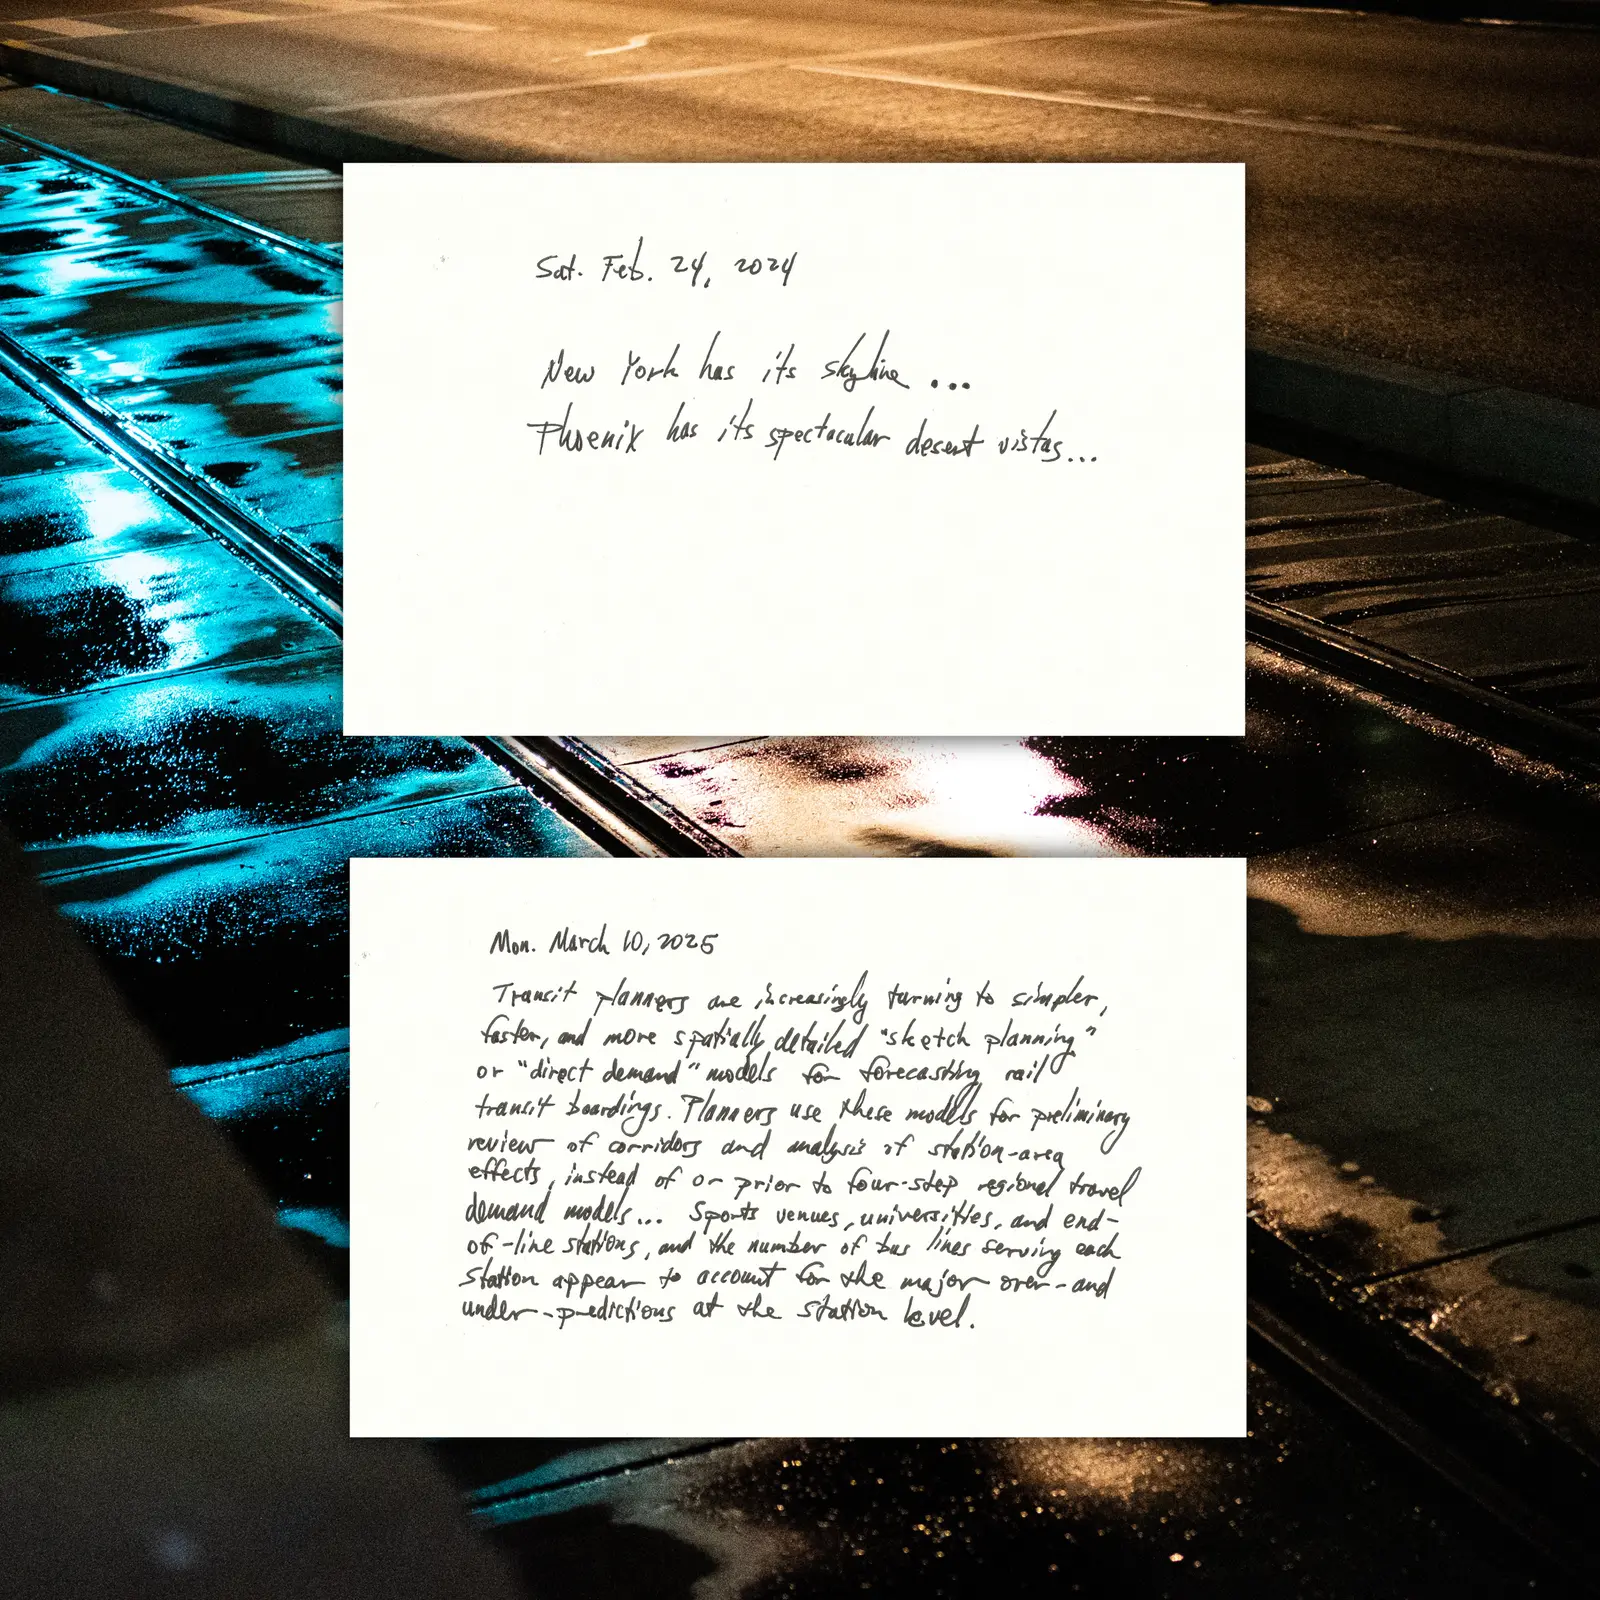 Sat. Feb. 24, 2024
New York has its skyline ...
Phoenix has its spectacular desert vistas...
Mon. March 10, 2025
Transit planners are increasingly turning to simpler,
faster, and more spatially detailed "sketch planning"
or "direct demand" models for forecasting rail
transit boardings. Planners use these models for preliminary
review of corridors and analysis of station-area
effects, instead of or prior to four-step regional travel
demand models... Sports venues, universities, and end-
of-line stations, and the number of bus lines serving each
station appear to account for the major over- and
under-predictions at the station level.